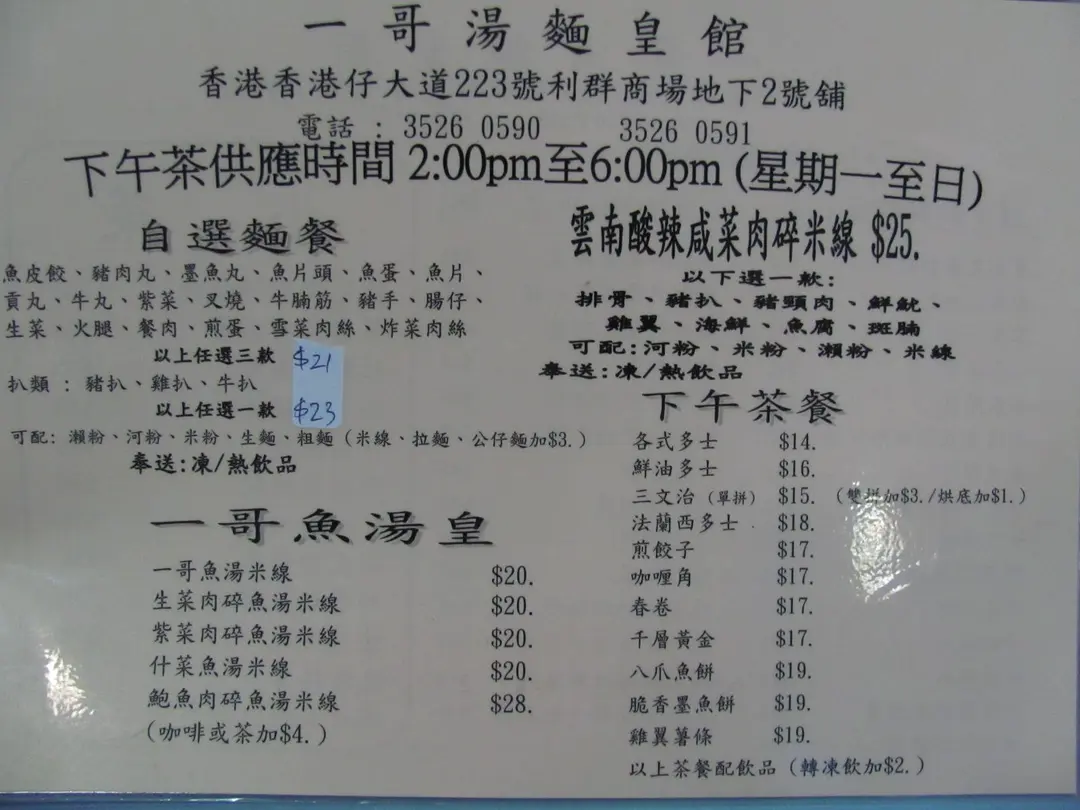 一哥湯麵皇館
香港香港仔大道223號利群商場地下2號舖
電話 : 3526 0590 3526 0591
下午茶供應時間 2:00pm至6:00pm (星期一至日)
自選麵餐
魚皮餃、豬肉丸、墨魚丸、魚片頭、魚蛋、魚片、
貢丸、牛丸、紫菜、叉燒、牛腩筋、豬手、腸仔、
生菜、火腿、餐肉、煎蛋、雪菜肉絲、炸菜肉絲
以上任選三款 $21
扒類 : 豬扒、雞扒、牛扒
以上任選一款 $23
可配: 瀨粉、河粉、米粉、生麵、粗麵 (米線、拉麵、公仔麵加$3.)
奉送:凍/熱飲品
一哥魚湯皇
一哥魚湯米線 $20.
生菜肉碎魚湯米線 $20.
紫菜肉碎魚湯米線 $20.
什菜魚湯米線 $20.
鮑魚肉碎魚湯米線 $28.
(咖啡或茶加$4.)
雲南酸辣咸菜肉碎米線 $25.
以下選一款:
排骨、豬扒、豬頸肉、鮮魷、
雞翼、海鮮、魚腐、斑腩
可配:河粉、米粉、瀨粉、米線
奉送:凍/熱飲品
下午茶餐
各式多士 $14.
鮮油多士 $16.
三文治 (單拼) $15. (雙拼加$3./烘底加$1.)
法蘭西多士 $18.
煎餃子 $17.
咖喱角 $17.
春卷 $17.
千層黃金 $17.
八爪魚餅 $19.
脆香墨魚餅 $19.
雞翼薯條 $19.
以上茶餐配飲品 (轉凍飲加$2.)